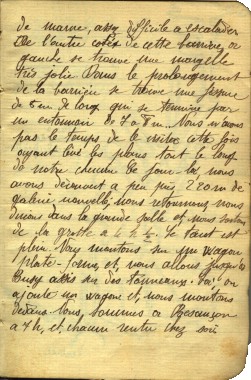 de marne, assez difficile à escalader
De l'autre côté de cette barrière, à
gauche se trouve une marmelle
très jolie Dans le prolongement
de la barrière se trouve une fissure
de 5 m de long qui se termine par
un entonnoir de 7 à 8 m. Nous n'avons
pas le temps de le visiter cette fois
ayant levé les plans tout le long
de notre chemin Ce jour-là, nous
avons découvert à peu près 220 m de
galerie nouvelle, nous retournons, nous
dînons dans la grande salle et nous sortons
de la grotte à 4 h ½. Le tacot est
plein Nous montons sur un wagon
plate-forme, et, nous allons jusqu'à
Busy assis sur des tonneaux. Là, on
ajoute un wagon et, nous montons
dedans Nous sommes à Besançon
à 7 h, et chacun rentre chez soi